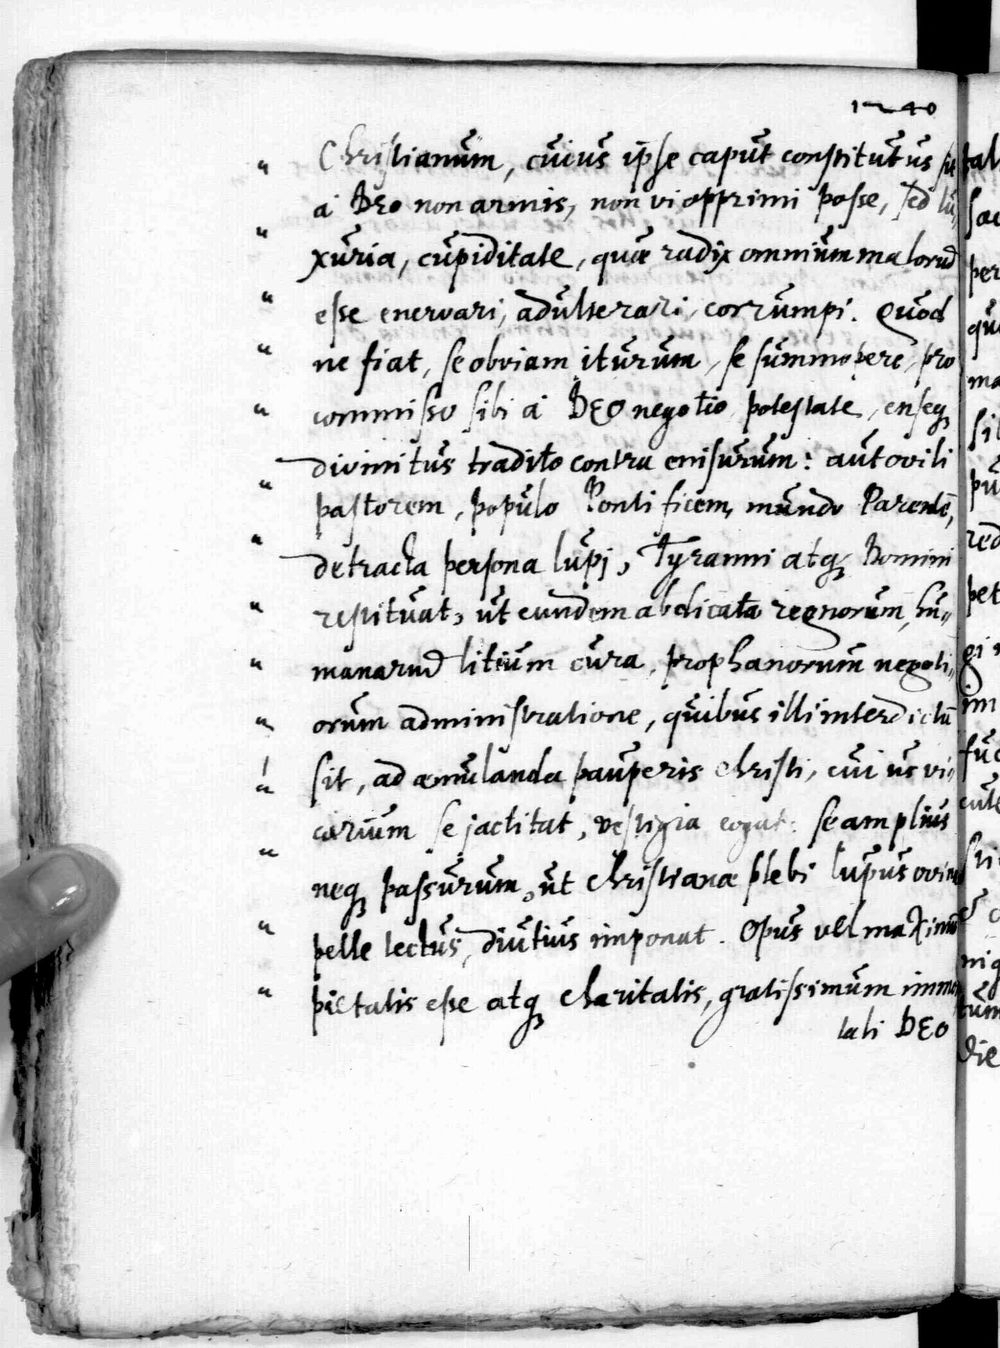 1240
Christianum, cuius ipse caput constitutus sit
a DEO non armis, non vi opprimi posse, sed lu„
xuria, cupiditate, quæ radix omnium malorũ
esse enervari, adulterari, corrumpi. Quod
ne fiat, se obviam iturum, se summopere, pro
commisso sibi a DEO negotio potestate, enseq
divinitus tradito contra enisurum: aut ovili
pastorem, populo Pontificem, mundo Parentē,
detracta persona lupj, Tyranni atq Domini
restituat, ut eundem abdicata regnorum, hu„
manarũ litium cura, prophanorum negoti„
orum administratione, quibus illi interdictū
sit, ad æmulanda pauperis Christi, cuius vi„
carium se jactitat, vestigia cogat: se amplius
neq passurum, ut Christianæ plebi lupus ovina
pelle tectus, diutius imponat. Opus vel maximū
pietatis esse atq charitatis, gratissimum immor
tali DEO